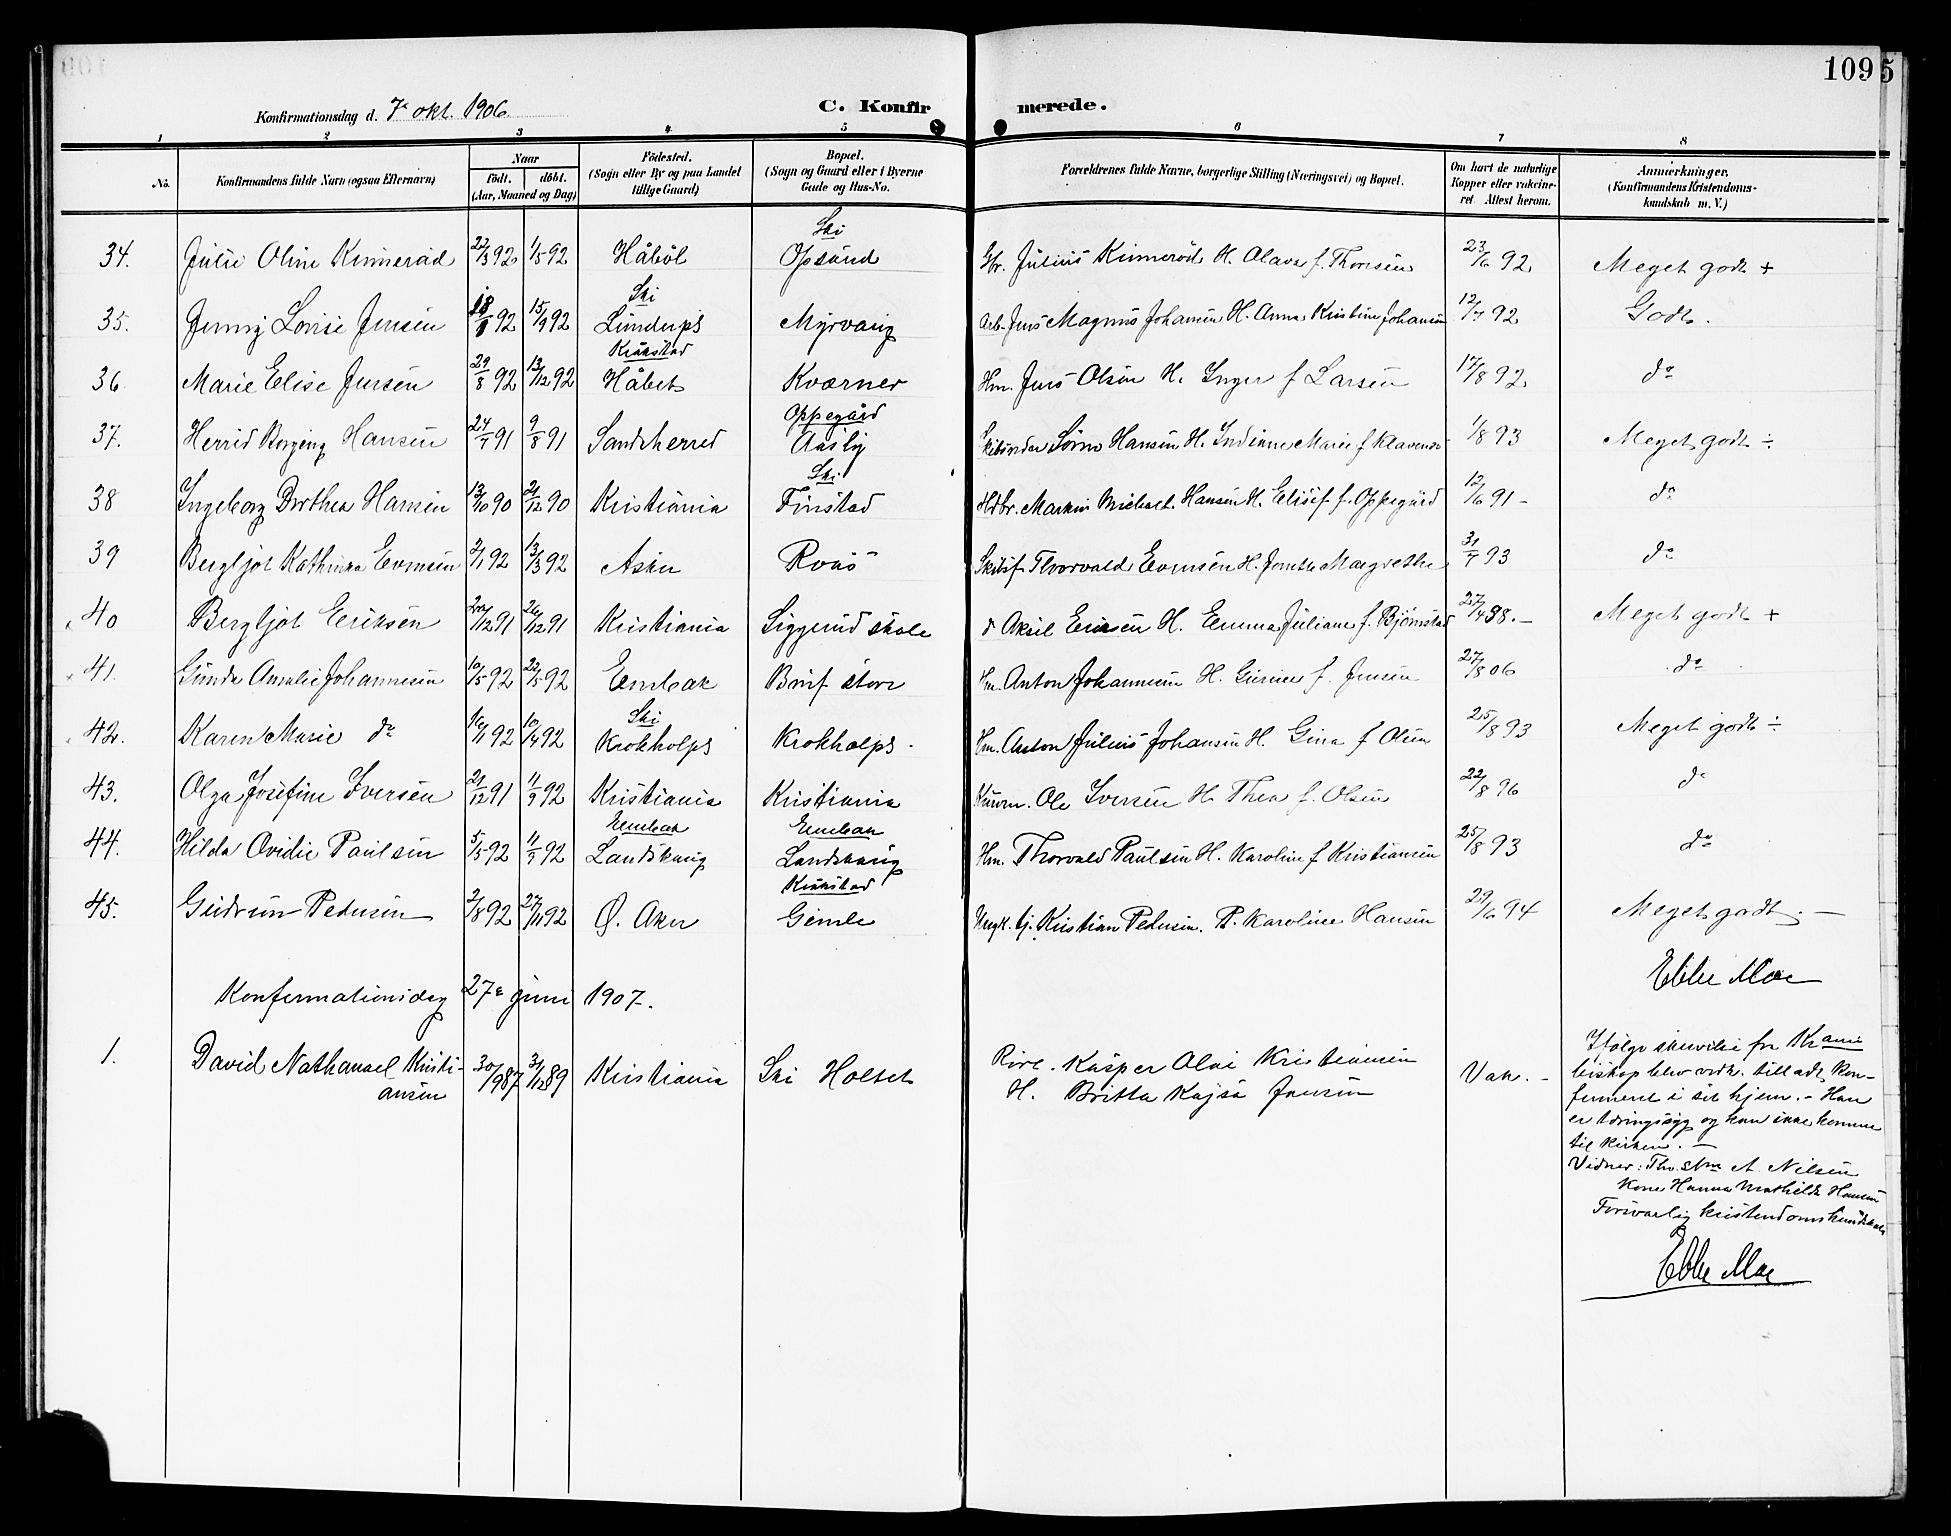 109
5
Konfirmationsdag d. 7de okt. 1906.
C. Konfirmerede.
1 2 3 4 5 6 7 8
No.
Konfirmandens fulde Navn (ogsaa Efternavn)
Naar
født. døbt.
(Aar, Maaned og Dag)
Födested.
(Sogn eller By og paa Landet
tillige Gaard)
Bopæl.
(Sogn og Gaard eller i Byerne
Gade og Hus-No.
Forældrenes fulde Navne, borgerlige Stilling (Næringsvei) og Bopæl.
Om havt de naturlige
Kopper eller vakcine-
ret Attest herom.
Anmærkninger,
(Konfirmandens Kristendoms-
kundskab m. V.)
Ski
34. Julie Oline Kinnerød 22/3 92 1/5 92 Håböl Opsand Gbr. Julius Kinnerød H. Olava f. Thoresen 23/6 92 Meget godt +
Ski
35. Jenny Lovise Jensen 92 15/9 92 Myrvang Arb. Jens Magnus Johansen H. Anna Kristine Johansen 12/7 92 Godt.
Kråkstad
36 Marie Elise Jensen 29/8 92 13/12 92 Håbet Kværner Hm. Jens Olsen H. Inger f Larsen 17/8 92 do
Oppegård
37. Hansen 24/7 91 9/8 91 Sandeherred Aasly Søren Hansen H. Marie f 1/8 93 Meget godt ÷
Ski
38 Ingeborg Dorthea Hansen 13/10 90 21/12 90 Kristiania Finstad Martin Michael Hansen H. Elisef f. Oppegård 12/6 91 - do
39 Bergljot Kathinka Evensen 2/1 92 13/3 92 Asker Roås Thorvald Evensen H. Margrethe 31/7 93 do
40 Bergljot Eriksen 20/12 91 26/12 91 Kristiania Siggerud skole Aksel Eriksen H. Emma Juliane f. Bjørnstad 27/4 98. - Meget godt +
41. Gunda Amalie Johannesen 10/5 92 22/5 92 Enebak store Hm. Anton Johannesen H. f. Jensen 27/8 06 do
Ski
42. Karen Marie do 16/1 92 10/4 92 Krokholps Krokholps. Hm. Anton Julius Johansen H. Gina f Olsen 25/8 93 Meget godt ÷
43. Olga Josefine Iversen 21/12 91 11/9 92 Kristiania Kristiania Ole Iversen H. Thea f. Olsen 22/8 96 do
Enebak Enebak
44. Hilda Ovidie Paulsen 5/5 92 11/9 92 Landskaug Landskaug Hm. Thorvald Paulsen H. Karoline f Kristiansen 25/8 93 do
Kråkstad
45. Gudrun Pedersen 2/8 92 27/11 92 Ø. Aker Gimle Ungk. Kristian Pedersen. P. Karoline Hansen 29/6 94 Meget godt. -
Ebbe Moe
Konfirmationsdag 27de juni 1907.
1. David Nathanael Kristi-
ansen 30/9 87 31/12 89 Kristiania Ski Holtet Kasper Olai Kristiansen
H. Britta Kajsa Jansen Vak. -
Ifølge skrivelse fra Krania
biskop blev vedk. tilladt kon-
firmeret i sit hjem. - Han
er tæringssyg og kan ikke komme
til kirken. -
Vidner: A. Nilsen
Kone Hanna Mathilde Hansen
Forsvarlig kristendomskundskab
Ebbe Moe